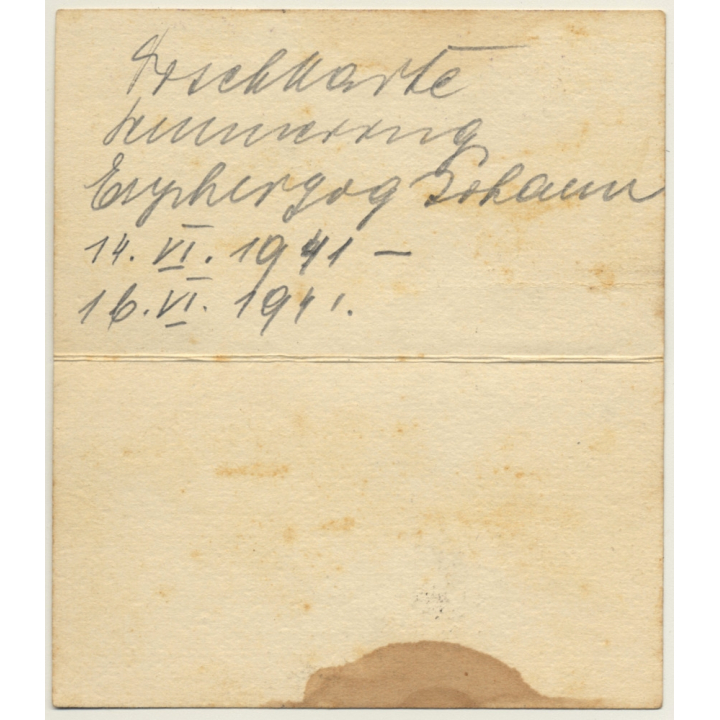 Tischkarte
Semmering
Erzherzog Johann
14. VI. 1941 –
16. VI. 1941.